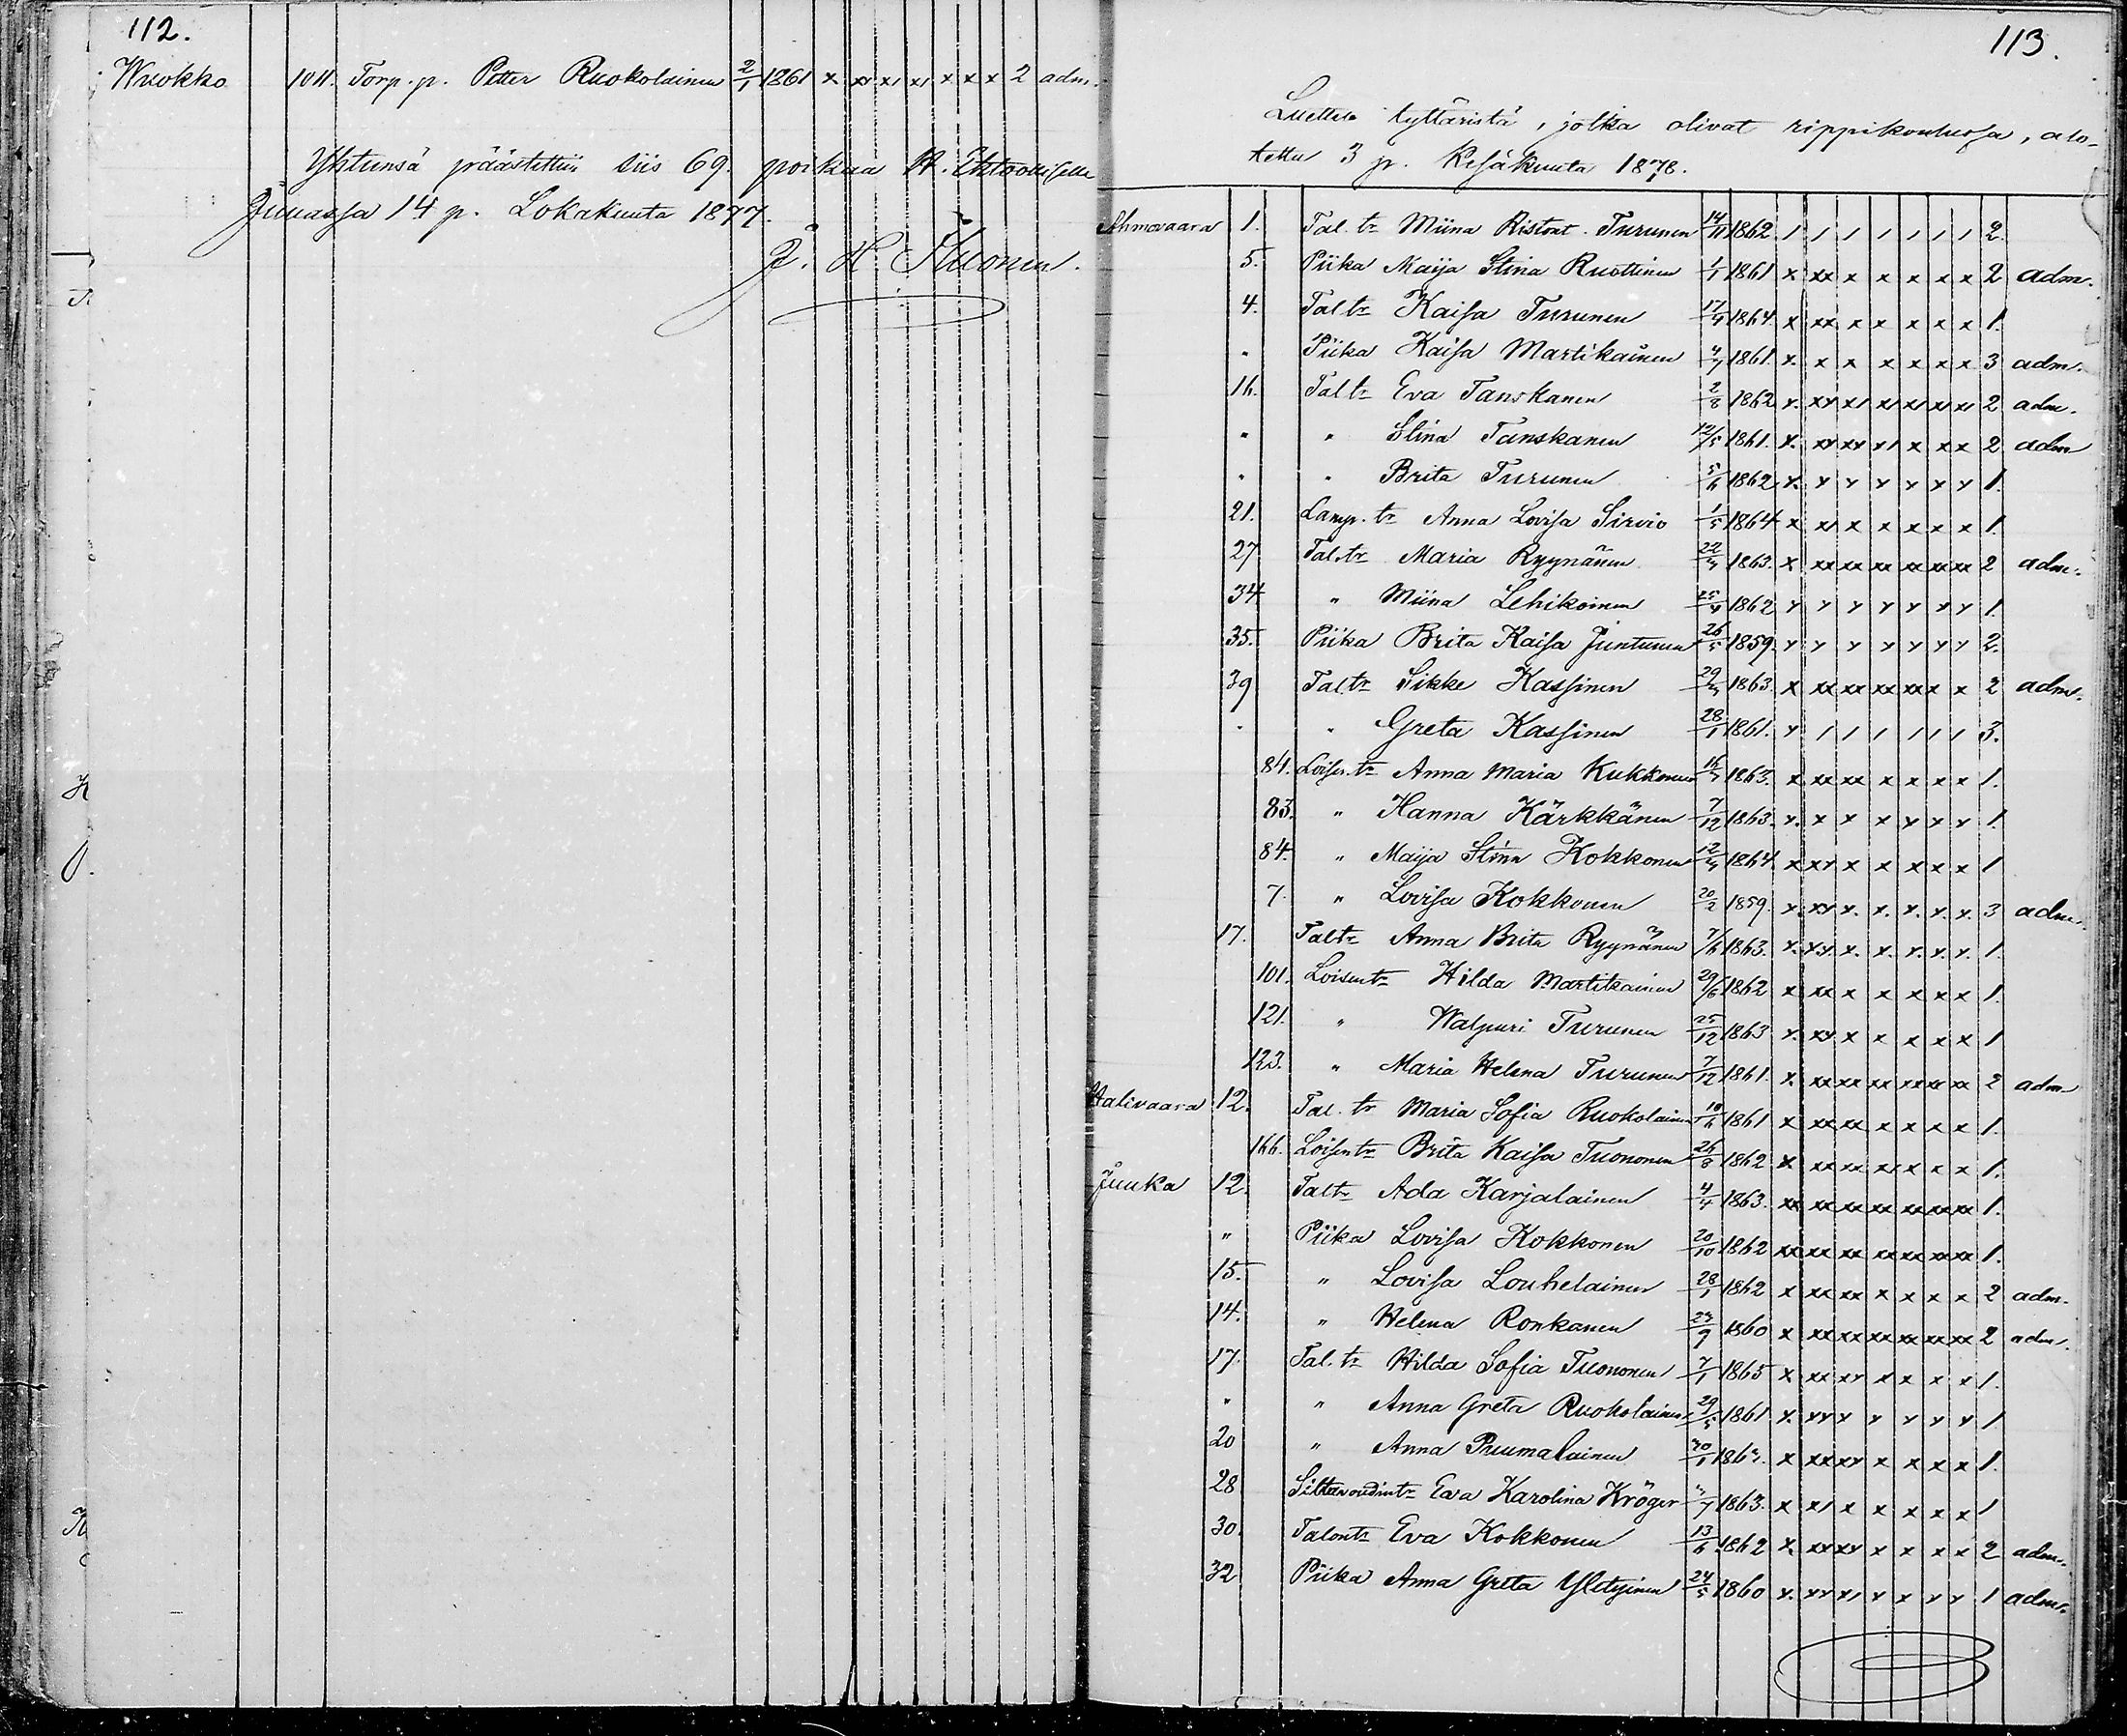 112.
Wuokko 104. Torp. p. Petter Ruokolainen 2/1 1861 x xx xı xı x x x 2 adm.
Yhteensä päästettiin siis 69. poikaa H. Ehtoolliselle
Juuassa 14 p. Lokakuuta 1877.
J. H.
113.
Luettelo tyttäristä, jotka olivat rippikoulussa, alo-
tettu 3 p. Kesäkuuta 1878.
Ahmovaara 1. Tal. tr Miina Ristont. Turunen 14/11 1862 / / / / / / / 2.
5. Piika Maija Stina Ruottinen 1/1 1861 x xx x x x x x 2 adm.
4. Tal tr Kaisa Turunen 17/9 1864 x xx x x x x x 1.
" Piika Kaisa Martikainen 1861. x. x x x x x x 3 adm.
16. Tal tr Eva Tanskanen 2/8 1862 x. xx xı xı xı xı xı 2 adm.
" " Stina Tanskanen 12/5 1861. x. xx xx xı x x x 2 adm
" " Brita Turunen 5/6 1862 x. x x x x x x 1.
21. Lamp. tr Anna Lovisa Sirvio 1/5 1864 x xı x x x x x 1.
27 Tal. tr Maria Ryynänen 1863. x xx xx xx xx xx xx 2 adm.
34 " Miina Lehikoinen 1862 x x x x x x x 1.
35. Piika Brita Kaisa Juntunen 26/5 1859. x x x x x x x 2.
39 Tal. tr Sikke Kassinen 1863. x xx xx xx xx x x 2 adm.
" " Greta Kassinen 28/1 1861. x / / / / / / 3.
84. Loisen. tr Anna Maria Kukkonen 1863. x xx xx x x x x 1.
83. " Hanna Kärkkänen 7/12 1863. x. x x x x x x 1.
84. " Maija Stina Kokkonen 1864. x xx x x x x x 1
7. " Lovisa Kokkonen 20/2 1859. x. xx x. x. x. x. x. 3 adm.
17. Tal tr Anna Brita Ryynänen 7/6 1863. x. xx. x. x. x. x. x. 1.
101. Loisen tr Hilda Martikainen 29/6 1862 x xx x x x x x 1.
121. " Walpuri Turunen 25/12 1863 x. xx x x x x x 1
123. " Maria Helena Turunen 7/12 1861. x xx xx xx xx xx xx 2 adm
Halivaara 12. Tal. tr Maria Sofia Ruokolainen 1861 x xx xx x x x x 1.
166. Loisen tr Brita Kaisa Tuononen 26/8 1862 x xx xx xx x x x 1.
Juuka 12. Tal tr Ada Karjalainen 4/4 1863. xx xx xx xx xx xx xx 1.
" Piika Lovisa Kokkonen 20/10 1862 xx xx xx xx xx xx xx 1.
15. " Lovisa Louhelainen 28/1 1862 x xx xx x x x x 2 adm.
14. " Helena Ronkanen 1860 x xx xx xx xx xx xx 2 adm.
17. Tal. tr Hilda Sofia Tuononen 7/1 1865 x xx xx x x x x 1.
" " Anna Greta Ruokolainen 29/5 1861 x. xx x x x x x 1
20 " Anna Puumalainen x xx xx x x x x 1.
28 Eva Karolina Kröger 1863. x xı x x x x x 1
30. Talontr Eva Kokkonen 13/6 1862 x. xx xx x x x x 2 adm.
32 Piika Anna Greta Yletyinen 24/5 1860 x. xx xı x x x x 1 adm.